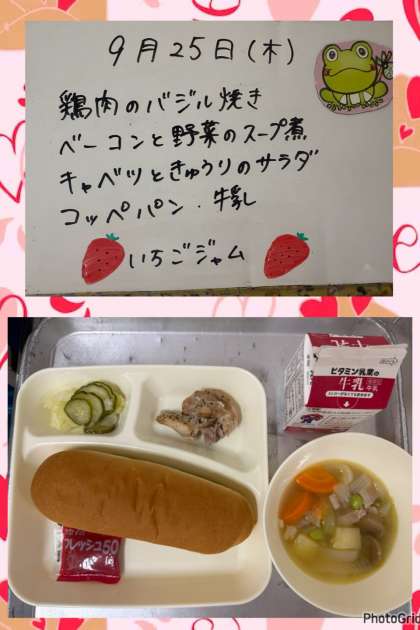 9月25日(木)
鶏肉のバジル焼き
ベーコンと野菜のスープ煮
キャベツときゅうりのサラダ
コッペパン・牛乳
いちごジャム
ビタミン乳業の
牛乳
フレッシュ50
PhotoGrid